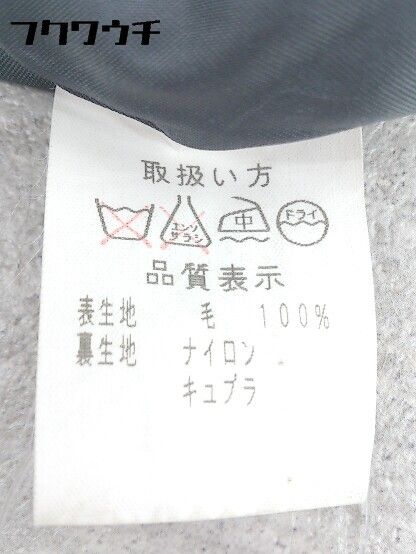 フクワウチ
取扱い方
エンソ
サラシ
中
ドライ
品質表示
表生地 毛 100%
裏生地 ナイロン
キュプラ